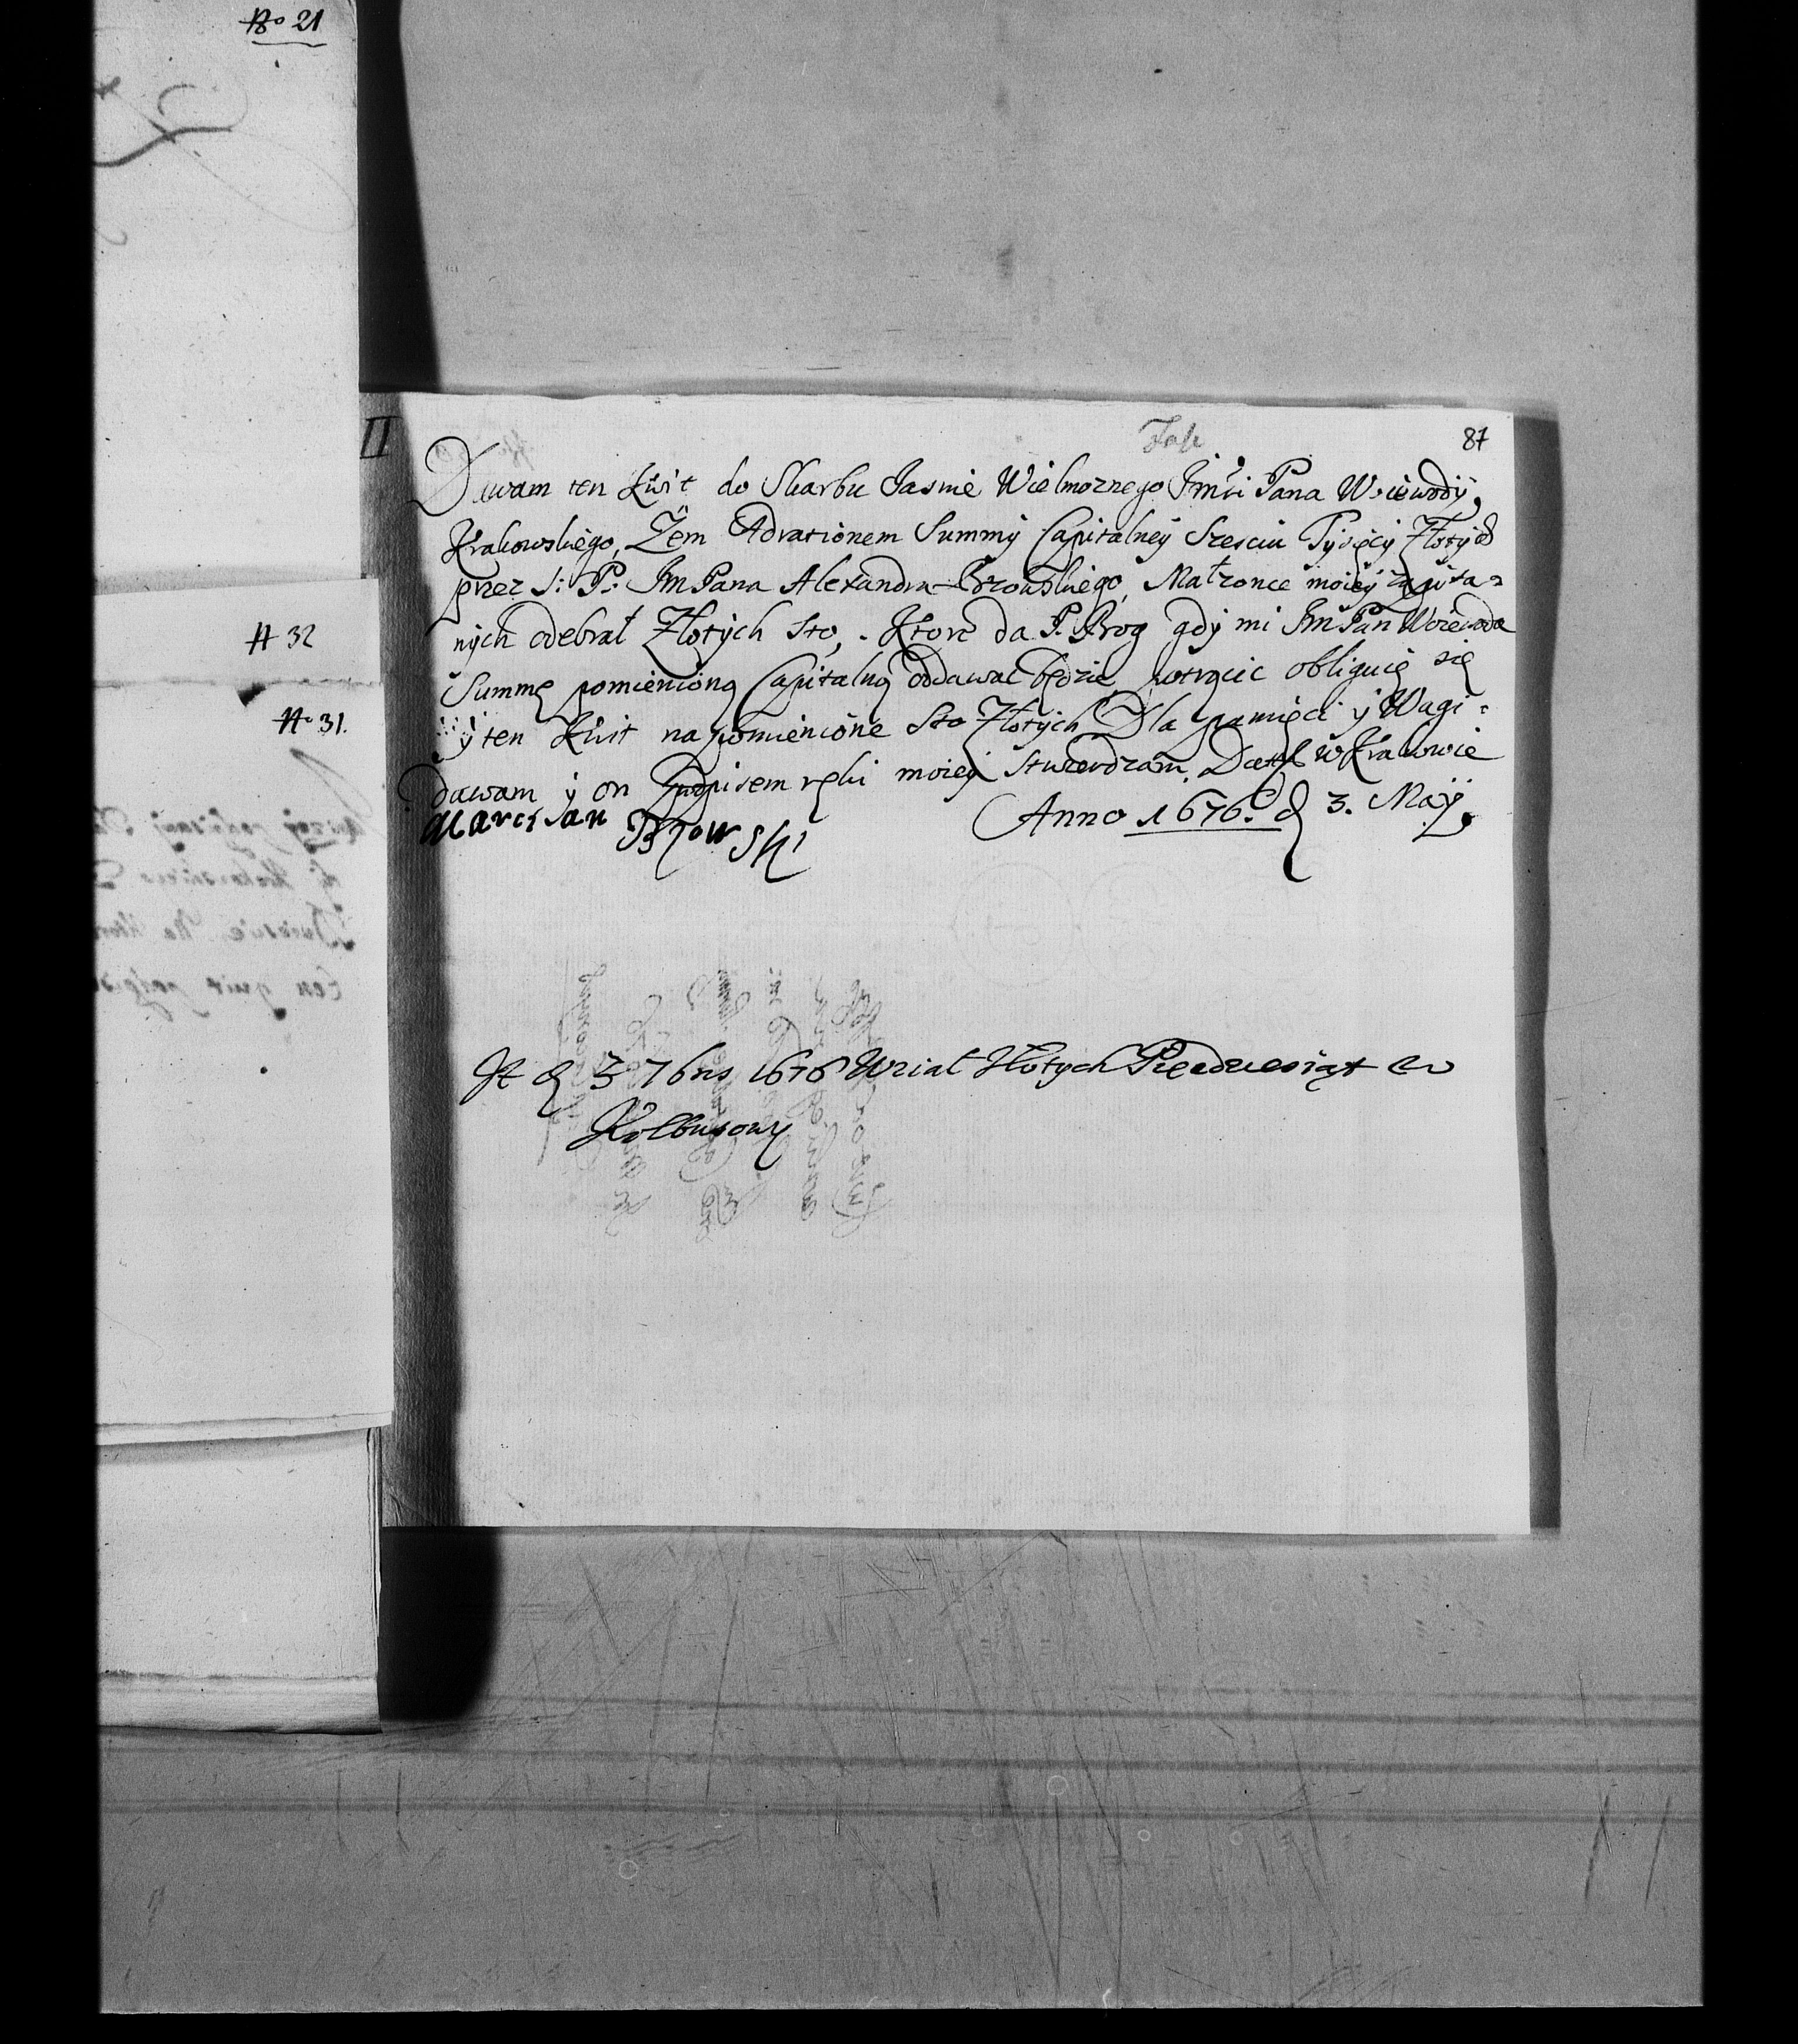 No 21
N 32
No 31.
II
87
Dawam ten kwit do Skarbu Jasnie Wielmoznego Jmsci Pana Woiewody,
Krakowskiego, Żem Adrationem Summy Capitalney Szesciu Tysięcy Złotych
przez S: P: Jm Pana Alexandra Brzowskiego, Małzonce moiey zapisa=
nych odebrał Złotych sto, Ktore da P. Bog gdy mi Jm Pan Woiewoda
Summę pomienioną Capitalną oddawac będzie potrącic obliguię się
y ten kwit na pomienione sto Złotych Dla pamięci y Wagi
dawam y on podpisem ręki moiey stwierdzam. Datt w Krakowie
Anno 1676. d 3. Maij.
Marcisan Brzowski
It d 3 7bris 1676 Wział Złotych Piędziesiąt w
Kolbuszowy